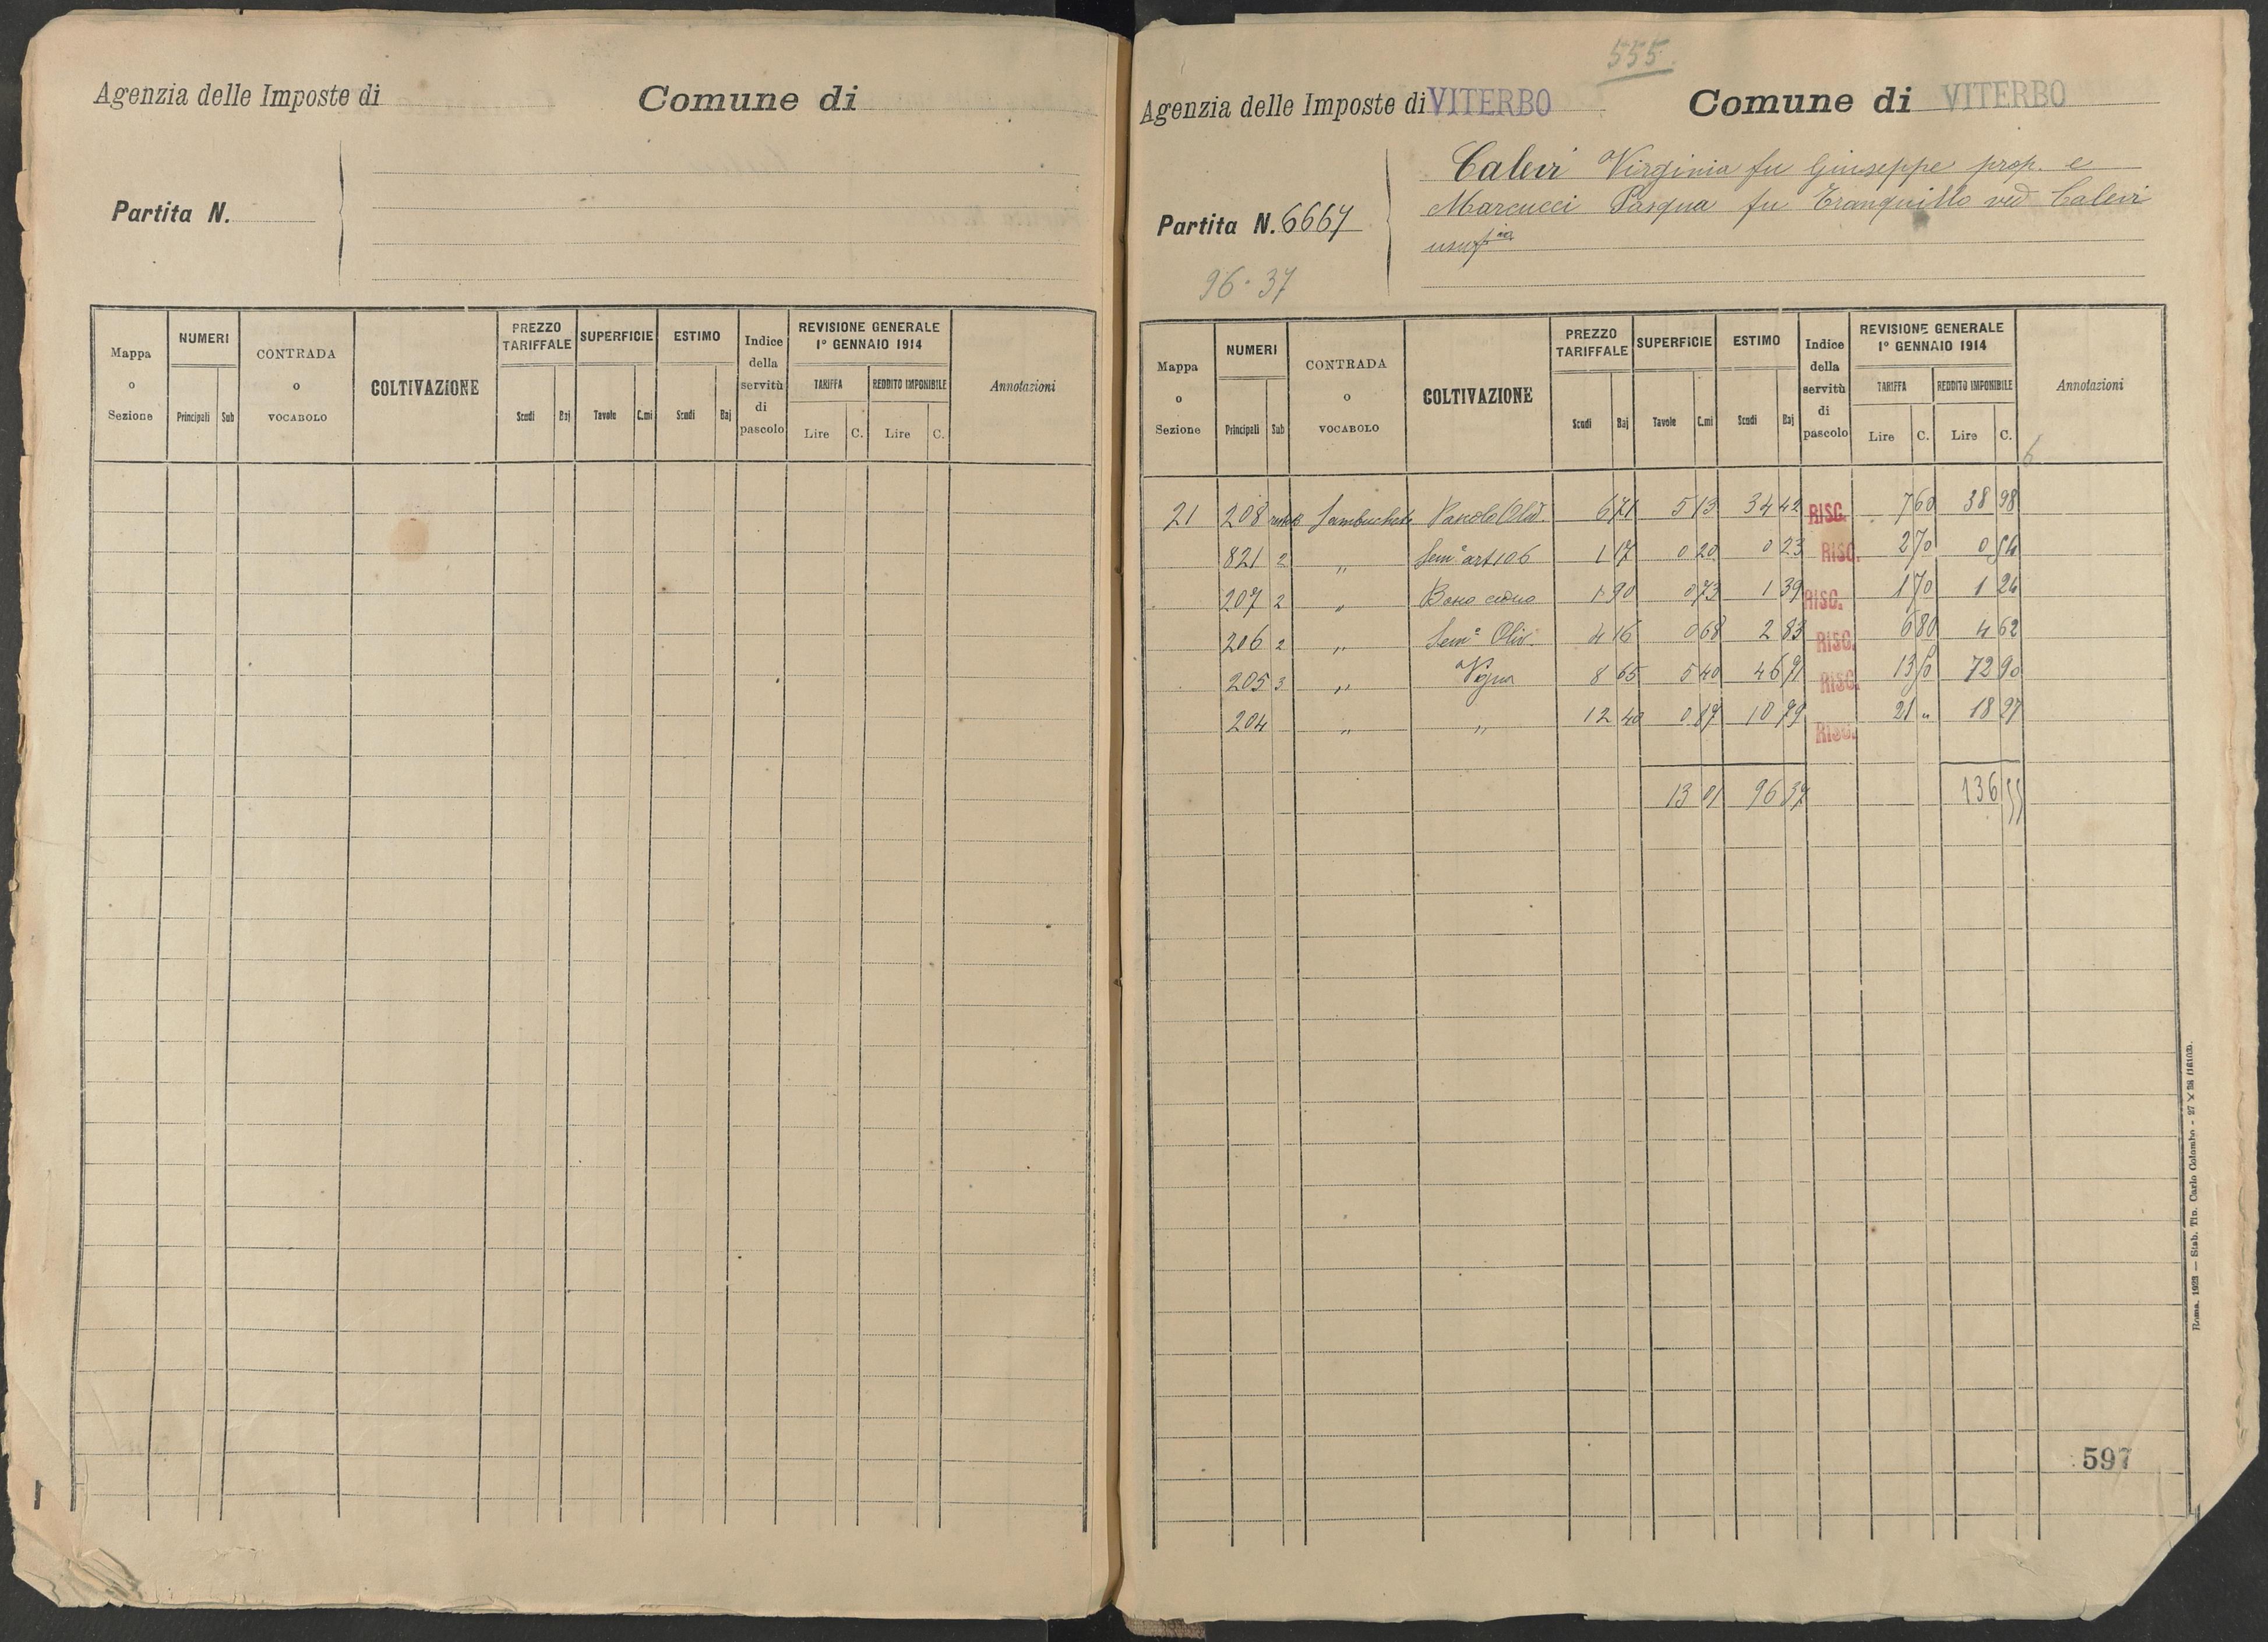 Agenzia delle Imposte di
Comune di
Partita N.
Mappa o Sezione
NUMERI
Principali Sub
CONTRADA o VOCABOLO
COLTIVAZIONE
PREZZO TARIFFALE
Scudi Baj
SUPERFICIE
Tavole C.mi
ESTIMO
Scudi Baj
Indice della servitù di pascolo
REVISIONE GENERALE 1º GENNAIO 1914
TARIFFA REDDITO IMPONIBILE
Lire C. Lire C.
Annotazioni
555.
Agenzia delle Imposte di VITERBO Comune di VITERBO
Calevi Virginia fu Giuseppe prop. e
Marcucci Pasqua fu Tranquillo ved Calevi
Partita N. 6667
96.37
Mappa o Sezione
NUMERI
Principali Sub
CONTRADA o VOCABOLO
COLTIVAZIONE
PREZZO TARIFFALE
Scudi Baj
SUPERFICIE
Tavole C.mi
ESTIMO
Scudi Baj
Indice della servitù di pascolo
REVISIONE GENERALE 1º GENNAIO 1914
TARIFFA REDDITO IMPONIBILE
Lire C. Lire C.
Annotazioni
6
21 208 6 71 5 13 34 42 RISC. 7 60 38 98
821 2 " Semº art 106 1 17 0 20 0 23 RISC. 2 70 0 54
207 2 " 1 90 0 73 1 39 RISC. 1 70 1 24
206 2 " Semº Oliv. 4 16 0 68 2 83 RISC. 6 80 4 62
205 3 " Vigna 8 65 5 40 46 71 RISC. 13 50 72 90
204 " " 12 40 0 87 10 79 RISC. 21 " 18 27
13 01 96 37 136 55
597
Roma, 1923 — Stab. Tip. Carlo Colombo - 27 X 23